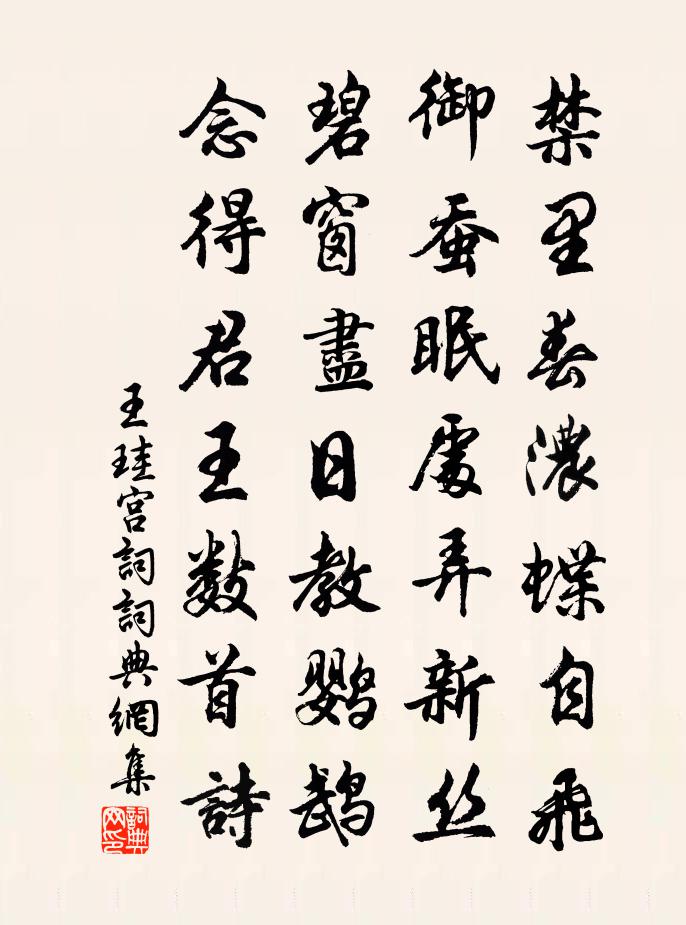 禁里春濃蝶自飛
御蚕眠處弄新丝
碧窗盡日教鹦鹉
念得君王数首詩
王珪宫詞詞典網集
詞典網印